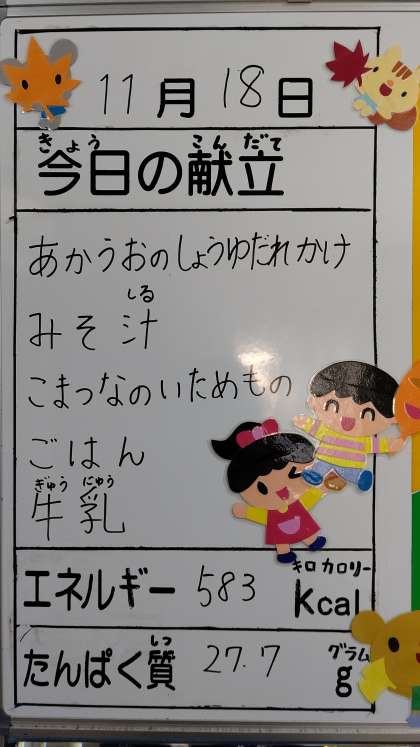 11月18日
きょう こんだて
今日の献立
あかうおのしょうゆだれかけ
しる
みそ汁
こまつなのいためもの
ごはん
ぎゅう にゅう
牛乳
キロカロリー
エネルギー 583 kcal
しつ グラム
たんぱく質 27.7 g